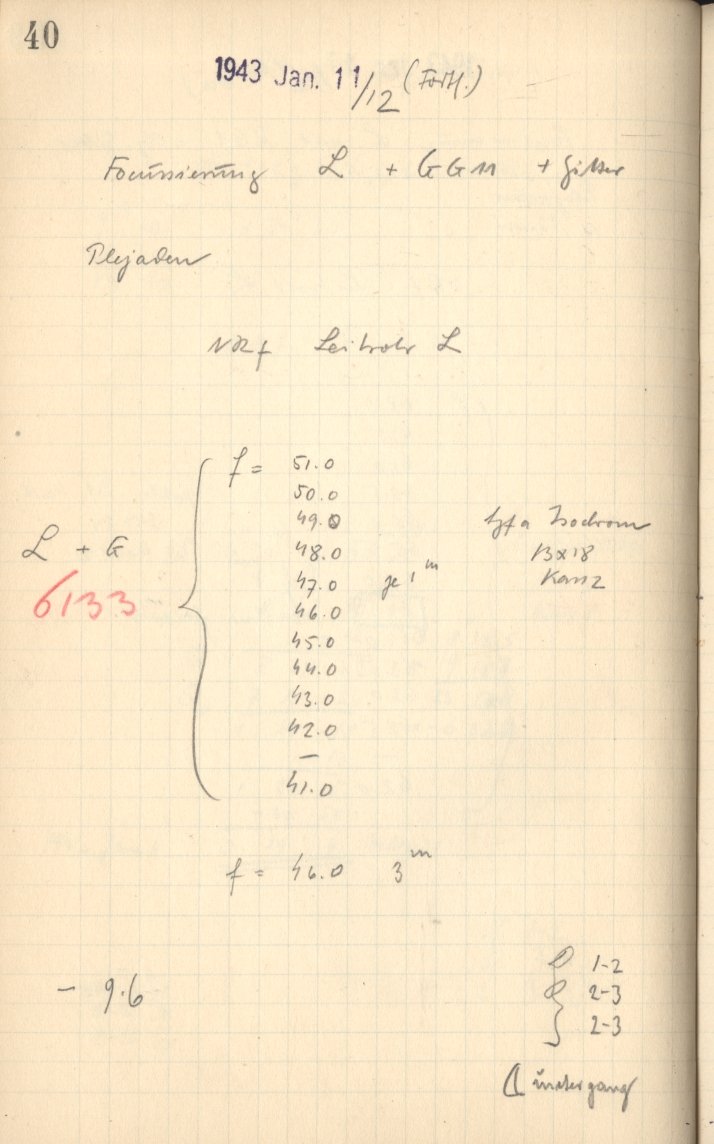 40
1943 Jan. 11/12 (Forts.)
Focussierung L + GG11 + Gitter
Plejaden
f Leitrohr L
f = 51.0
50.0
49.0
Agfa Isochrom
L + G
48.0
13x18
6133
47.0 je 1m
46.0
45.0
44.0
43.0
42.0
–
41.0
f = 46.0 3m
1-2
- 9.6
2-3
2-3
untergang